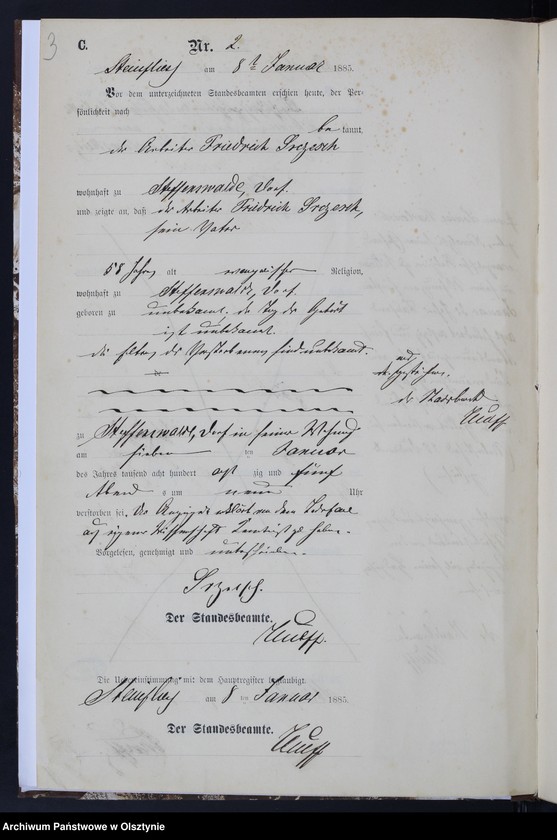 3
C.
Nr. 2.
am 8ten Januar 1885.
Vor dem unterzeichneten Standesbeamten erschien heute, der Per-
sönlichkeit nach
bekannt,
der Arbeiter Friedrich
wohnhaft zu Steffenswalde, Dorf
und zeigte an, daß der Arbeiter Friedrich
sein Vater
58 Jahr alt evangelischer Religion,
wohnhaft zu Steffenswalde, Dorf
geboren zu unbekannt, der Tag der Geburt
ist unbekannt.
die Eltern des Verstorbenen sind unbekannt.
zu Steffenswalde, Dorf in seiner Wohnung
am sieben ten Januar
des Jahres tausend acht hundert acht zig und fünf
Abends um neun Uhr
verstorben sei. Der Anzeigende erklärt von dem Todesfall
aus eigener Wissenschaft Kenntniß zu haben.
Vorgelesen, genehmigt und unterschrieben.
Der Standesbeamte.
Die Uebereinstimmung mit dem Hauptregister beglaubigt
am 8 ten Januar 1885.
Der Standesbeamte.
Archiwum Państwowe w Olsztynie